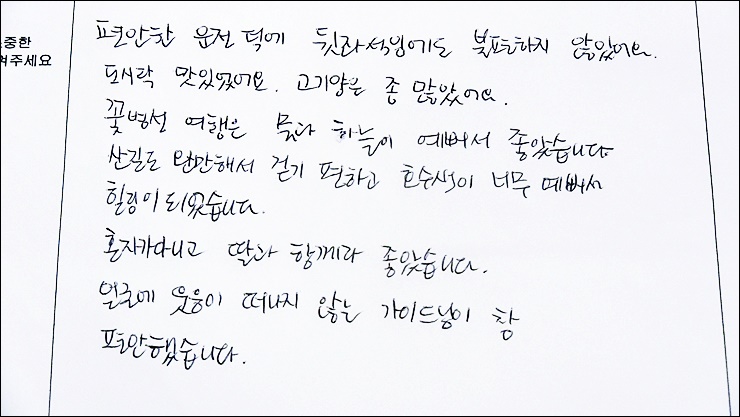 소중한
겨주세요
편안한 운전 덕에 뒷좌석임에도 불편하지 않았어요.
도시락 맛있었어요. 고기양은 좀 많았어요.
꽃병선 여행은 물과 하늘이 예뻐서 좋았습니다
산길도 완만해서 걷기 편하고 호수색이 너무 예뻐서
힐링이 되었습니다.
혼자가 아니고 딸과 함께라 좋았습니다.
얼굴에 웃음이 떠나지 않는 가이드님이 참
편안했습니다.